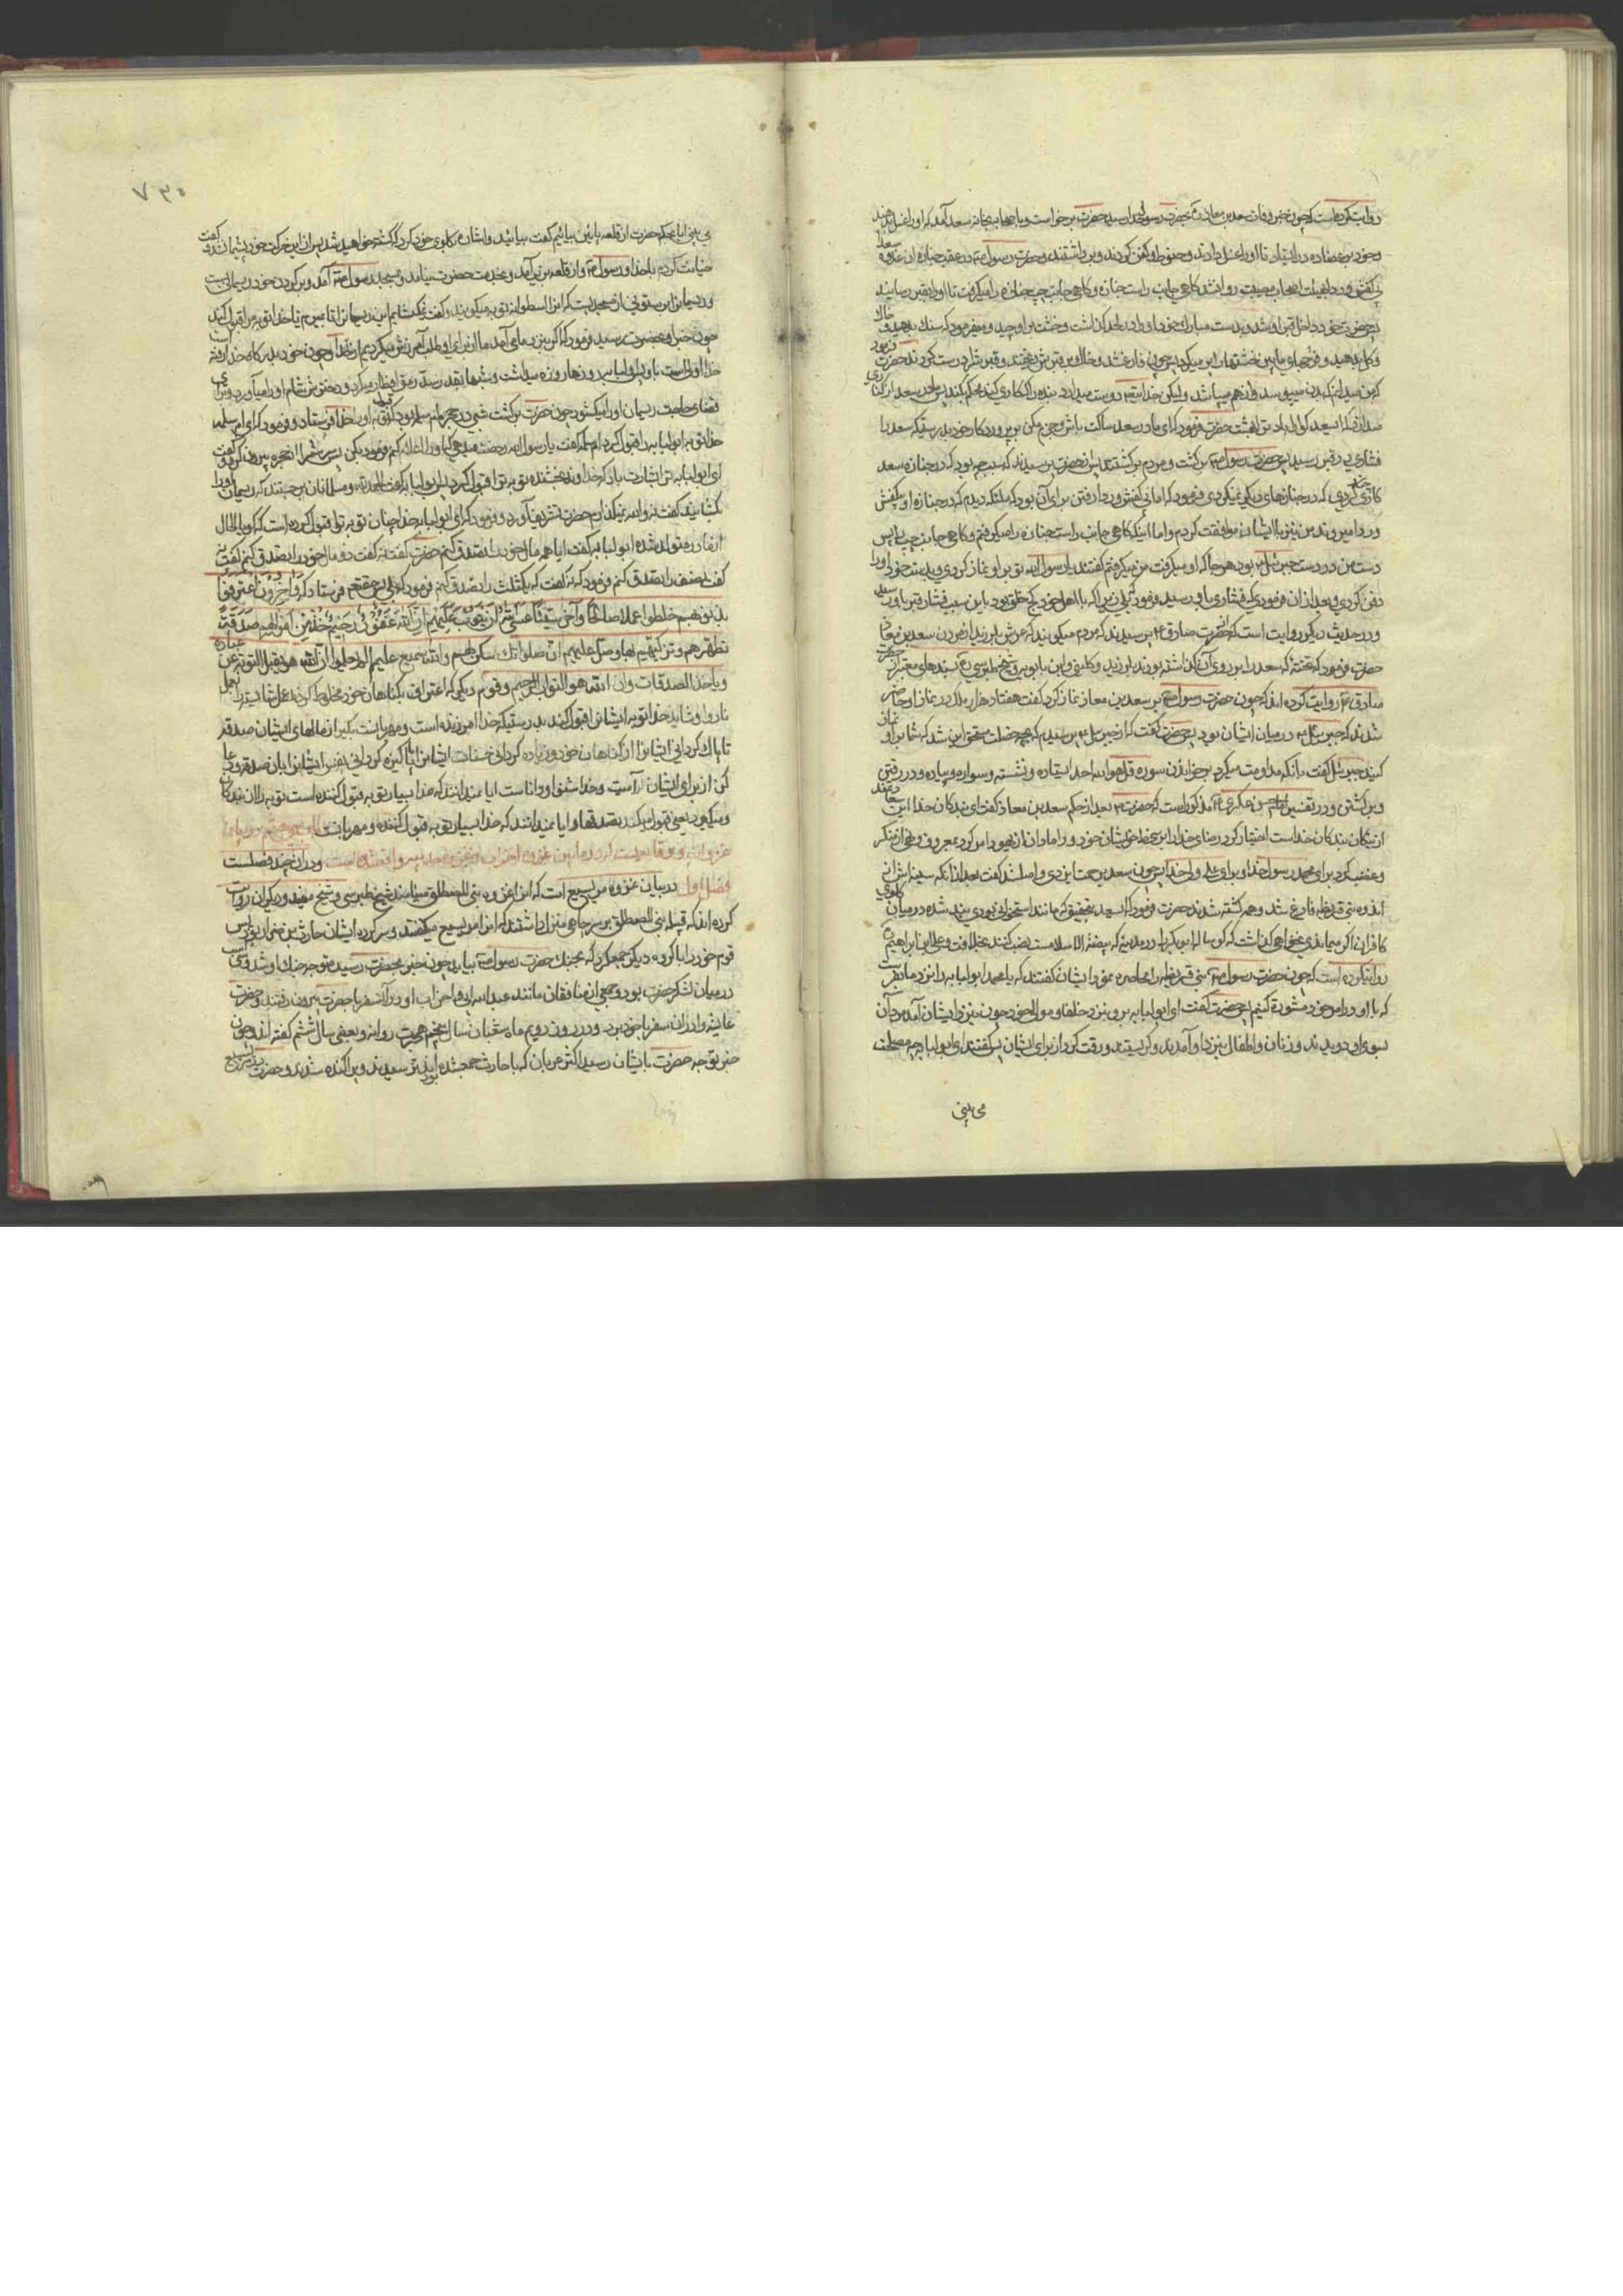 روایت کرده است که چون خبر وفات سعد بن معاذ بحضرت رسول خدا رسید حضرت برخواست و با صحابه بخانه سعد آمد که او را غسل دهند
و خود بر عضاده در ایستاد تا او را غسل دادند و حنوط و کفن کردند و برداشتند و حضرت رسول در عقب جنازه سعد
بی کفش و ردا بهیئت اصحاب مصیبت روانه شد گاهی جانب راست جنازه و گاهی جانب چپ جنازه را میگرفت تا او را بقبر رسانید
پس حضرت خود داخل قبر او شد و بدست مبارک خود او را در لحد گذاشت و خشت بر او چید و میفرمود که سنک بدهید و خاک
و گل بدهید و فرجهای مابین خشتها را پر میکرد پس چون فارغ شد و خاک بر قبرش ریختند و قبرش را درست کردند حضرت فرمود
که من میدانم که بدن میپوسد و از هم میپاشد ولیکن خدا دوست میدارد بنده را که کاری کند محکم بکند پس مادر سعد از کناری
صدا زد که ای سعد گوارا باد ترا بهشت حضرت فرمود که ای مادر سعد ساکت باش و جزم مکن بر پروردگار خود بدرستیکه سعد را
فشاری در قبر رسید پس حضرت رسول برگشت و مردم برگشتند پس از حضرت پرسیدند که سبب چه بود که در جنازه سعد
کاری چند کردی که در جنازهای دیگر نمیکردی فرمود که اما بی کفش و ردا رفتن برای آن بود که ملئکه دیدم که در جنازه او بی کفش
و ردا میروند من نیز با ایشان موافقت کردم و اما اینکه گاهی جانب راست جنازه را میگرفتم و گاهی جانب چپ را پس
دست من در دست جبرئیل بود هر جا که او میگرفت من میگرفتم گفتند یا رسول الله تو بر او نماز کردی و بدست خود او را
دفن کردی و بعد از آن فرمودی که فشاری باو رسید فرمود که بلی زیرا که با اهل خود کج خلق بود باین سبب فشار قبر باو رسید
و در حدیث دیگر روایت است که از حضرت صادق پرسیدند که مردم میگویند که عرش بلرزید از مردن سعد بن معاذ
حضرت فرمود که تخته که سعد را بر روی آن گذاشته بودند بلرزید و کلینی و ابن بابویه و شیخ طوسی بسندهای معتبر از حضرت
صادق روایت کرده اند که چون حضرت رسول بر سعد بن معاذ نماز کرد گفت هفتاد هزار ملک در نماز او حاضر
شدند که جبرئیل در میان ایشان بود پس حضرت گفت که از جبرئیل پرسیدم که بچه خصلت مستحق این شد که شما بر او نماز
کنید جبرئیل گفت بآنکه مداومت میکرد بر خواندن سوره قل هو الله احد ایستاده و نشسته و سواره و پیاده و در رفتن
و برگشتن و در تفسیر امام حسن عسکری مذکور است که حضرت بعد از حکم سعد بن معاذ گفت ای بندگان خدا این سعد
از نیکان بندگان خداست اختیار کرد رضای خدا را بر سخط خویشان خود و دامادان از یهود امر کرد بمعروف و نهی از منکر
و غضب کرد برای محمد رسول خدا و برای علی ولی خدا پس چون سعد بن معاذ برحمت ایزدی واصل شد گفت بعد از آنکه سینه اش از
اندوه بنی قریظه فارغ شد و همه کشته شدند حضرت فرمود که ای سعد بتحقیق که مانند استخوانی بودی بند شده در گلوی
کافران اگر میماندی نمیخواستی گذاشت که گوساله ابوبکر را در مدینه که بیضۀ الاسلامست نصب کنند بخلافت و علی بن ابراهیم
روایت کرده است که چون حضرت رسول بنی قریظه را محاصره نمود ایشان گفتند که یا محمد ابو لبابه را نزد ما بفرست
که با او در امر خود مشورت کنیم پس حضرت گفت ای ابو لبابه برو بنزد حلفا و موالی خود چون بنزد ایشان آمد مردان
بسوی او دویدند و زنان و اطفال بنزد او آمدند و گریستند و رقت کرد از برای ایشان پس گفتند ای ابو لبابه چه مصلحت
می بینی
۷۳۵
می بینی آیا بحکم حضرت از قلعه پایین بیائیم گفت بیائید و اشاره بگلوی خود کرد که کشته خواهید شد پس از این حرکت خود پشیمان شد و گفت
خیانت کردم با خدا و رسول و از قلعه بزیر آمد و بخدمت حضرت نیامد و بمسجد رسول آمد و بر گردن خود ریسمانی بست
و ریسمانرا بر ستونی از مسجد بست که آنرا اسطوانه توبه میگویند و گفت نمیگشایم این ریسمانرا تا بمیرم یا خدا توبه مرا قبول کند
چون خبر او بحضرت رسید فرمود که اگر بنزد ما می آمد ما از برای او طلب آمرزش میکردیم از خدا و چون خود بدرگاه خدا رفته است
خدا اولی است باو و ابو لبابه روزها روزه میداشت و شبها بقدر سد رمق افطار میکرد و دخترش شام او را میآورد و برای
قضای حاجت ریسمان او را میگشود چون حضرت برگشت شبی در حجره ام سلمه بود که توبه او را خدا فرستاد و فرمود که ای ام سلمه
خدا توبه ابو لبابه را قبول کرد ام سلمه گفت یا رسول الله رخصت میدهی که او را اعلام کنم فرمود بکن پس سر خود را از حجره بیرون کرد و گفت
ای ابو لبابه ترا بشارت باد که خداوند بخشنده توبه ترا قبول کرد پس ابو لبابه گفت الحمد لله و مسلمانان برجستند که ریسمان او را
بگشایند گفت نه والله نمیگذارم حضرت تشریف آورد و فرمود که ای ابو لبابه خدا چنان توبه ترا قبول کرده است که گویا الحال
از مادر متولد شده ابو لبابه گفت آیا همه مال خود را تصدق کنم حضرت گفت نه گفت دو مال خود را تصدق کنم گفت نه
گفت نصف را تصدق کنم فرمود که نه گفت که یک ثلث را تصدق کنم فرمود که بلی پس حقتعم فرستاد که وَآخَرُونَ اعْتَرَفُوا
بذنوبهم خلطوا عملا صالحا وآخر سیئا عسی الله ان یتوب علیهم ان الله غفور رحیم خذ من اموالهم صدقة
تطهرهم وتزکیهم بها وصل علیهم ان صلواتك سکن لهم والله سمیع علیم الم یعلموا ان الله هو یقبل التوبة عن عباده
ویاخذ الصدقات وان الله هو التواب الرحیم و قوم دیگر که اعتراف بگناهان خود مخلوط کردند عمل شایسته را بعمل
ناروا و شاید خدا توبه ایشانرا قبول کند بدرستیکه خدا آمرزنده است و مهربانست بگیر از مالهای ایشان صدقه
تا پاک گردانی ایشانرا از گناهان خود و زیاده گردانی حسنات ایشانرا یا پاکیزه گردانی نفس ایشانرا بآن صدقه و دعا
کن از برای ایشان آرامست و خدا شنوا و داناست آیا نمیدانند که خدا بسیار توبه قبول کننده است توبه را از بندگان
و میگیرد یعنی قبول میکند تصدقها و آیا نمیدانند که خدا بسیار توبه قبول کننده و مهربانست باب سی و هفتم در بیان
غزوات و وقایعست که در ما بین غزوه احزاب و غزوه حدیبیه واقع شده است و در آن چند فصلست
فصل اول در بیان غزوه مریسیع است که آنرا غزوه بنی المصطلق مینامند شیخ طبرسی و شیخ مفید و دیگران روایت
کرده اند که قبیله بنی المصطلق بر سر چاهی منزل داشتند که آنرا مریسیع میگفتند و سرکرده ایشان حارث بن ضرار بود پس
قوم خود را با گروه دیگر جمع کرد که بجنک حضرت رسول بیاید چون خبر بحضرت رسید متوجه جنک او شد و سی اسب
در میان لشکر حضرت بود و جمعی از منافقان مانند عبد الله ابی و احزاب او در آن سفر با حضرت بیرون رفتند و حضرت
عایشه را در آن سفر با خود برد و در روز دویم ماه شعبان سال پنجم هجرت روانه و بعضی سال ششم گفته اند و چون
خبر توجه حضرت بایشان رسید اکثر عربان که با حارث جمع شده بودند ترسیدند و پراکنده شدند و حضرت